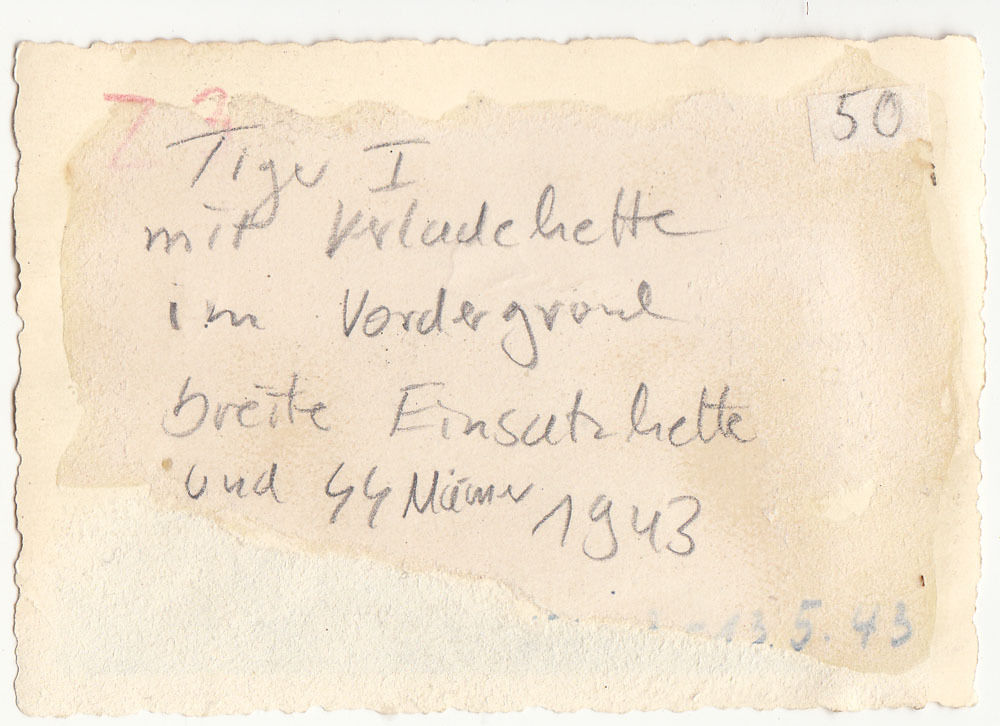 Z 3
50
Tiger I
mit Verladekette
im Vordergrund
breite Einsatzkette
und SS Männer 1943
13.5.43